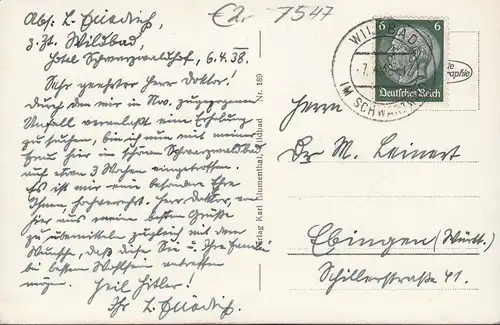 Abs: L. Friedrich,
z. Zt. Wildbad,
Hotel Schwarzwaldhof, 6.4.38.
Sehr geehrter Herr Doktor!
Durch den mir in Nov. zugezogenen
Unfall veranlaßt eine Erholung
zu suchen, bin ich nun mit meiner
Frau hier im schönen Schwarzwaldbad
auf etwa 3 Wochen eingetroffen.
Es ist mir eine besondere Ehre
Ihnen, hochverehrt. Herr Doktor, von
hier aus meine besten Grüße
zu übermitteln zugleich mit dem
Wunsche, daß diese Sie u. Ihre Familie
bei bestem Wohlsein antreffen
mögen. Heil Hitler!
Ihr L. Friedrich.
€2,- 7547
Verlag Karl Blumenthal, Wildbad Nr. 189
WILDBAD
IM SCHWARZW
6 6
Deutsches Reich
graphie
Herrn
Dr M. Leinert
Ebingen (Württ.)
Schillerstraße 41.